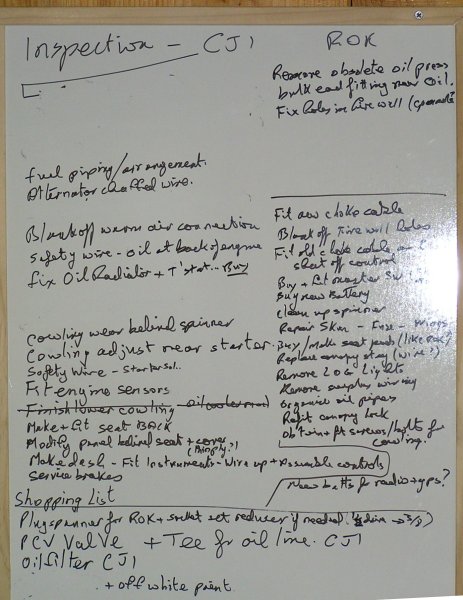 Inspection - CJ1
fuel piping/arrangement.
Alternator chaffed wire.
Blank off warm air connection
safety wire - oil at back of engine
fix Oil Radiator + T'stat... Buy
Cowling wear behind spinner
Cowling adjust near starter.
Safety wire - starter sol..
Fit engine sensors
Finish lower cowling oil cooler mod
Make + fit seat BACK
Modify panel behind seat + cover
(thinply?)
Make dash - Fit Instruments - Wire up + Assemble controls
Service brakes
ROK
Remove obsolete oil press
bulk ead fitting near oil.
Fix holes in firewall
Fit new choke cable
Blank off Firewall holes
Fit old choke cable
shut off control
Buy + fit master
Buy new Battery
Clean up spinner
Repair Skin - Fuse - Wings
Buy/Make seat pads (like ROK)
Replace canopy stay (wire?)
Remove LOG Lights
Remove surplus wiring
Organise oil pipes
Refit canopy lock
Obtain + fit screws/bolts for
cowling.
New batts for radio + gps?
Shopping List
Plugspanner for ROK + socket set reducer if needed.
PCV Valve + Tee for oil line. CJ1
Oil filter CJ1
+ off white paint.